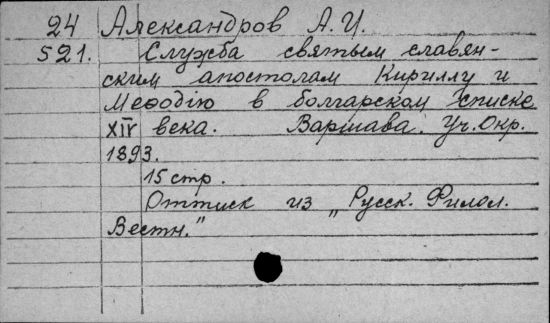 24 Александров А. И.
521. Служба святым славян-
ским апостолам Кириллу и
Меѳодію в болгарском списке
XIV века. Варшава. Уч. Окр.
1893.
15 стр.
Оттиск из „Русск. Филол.
Вестн."